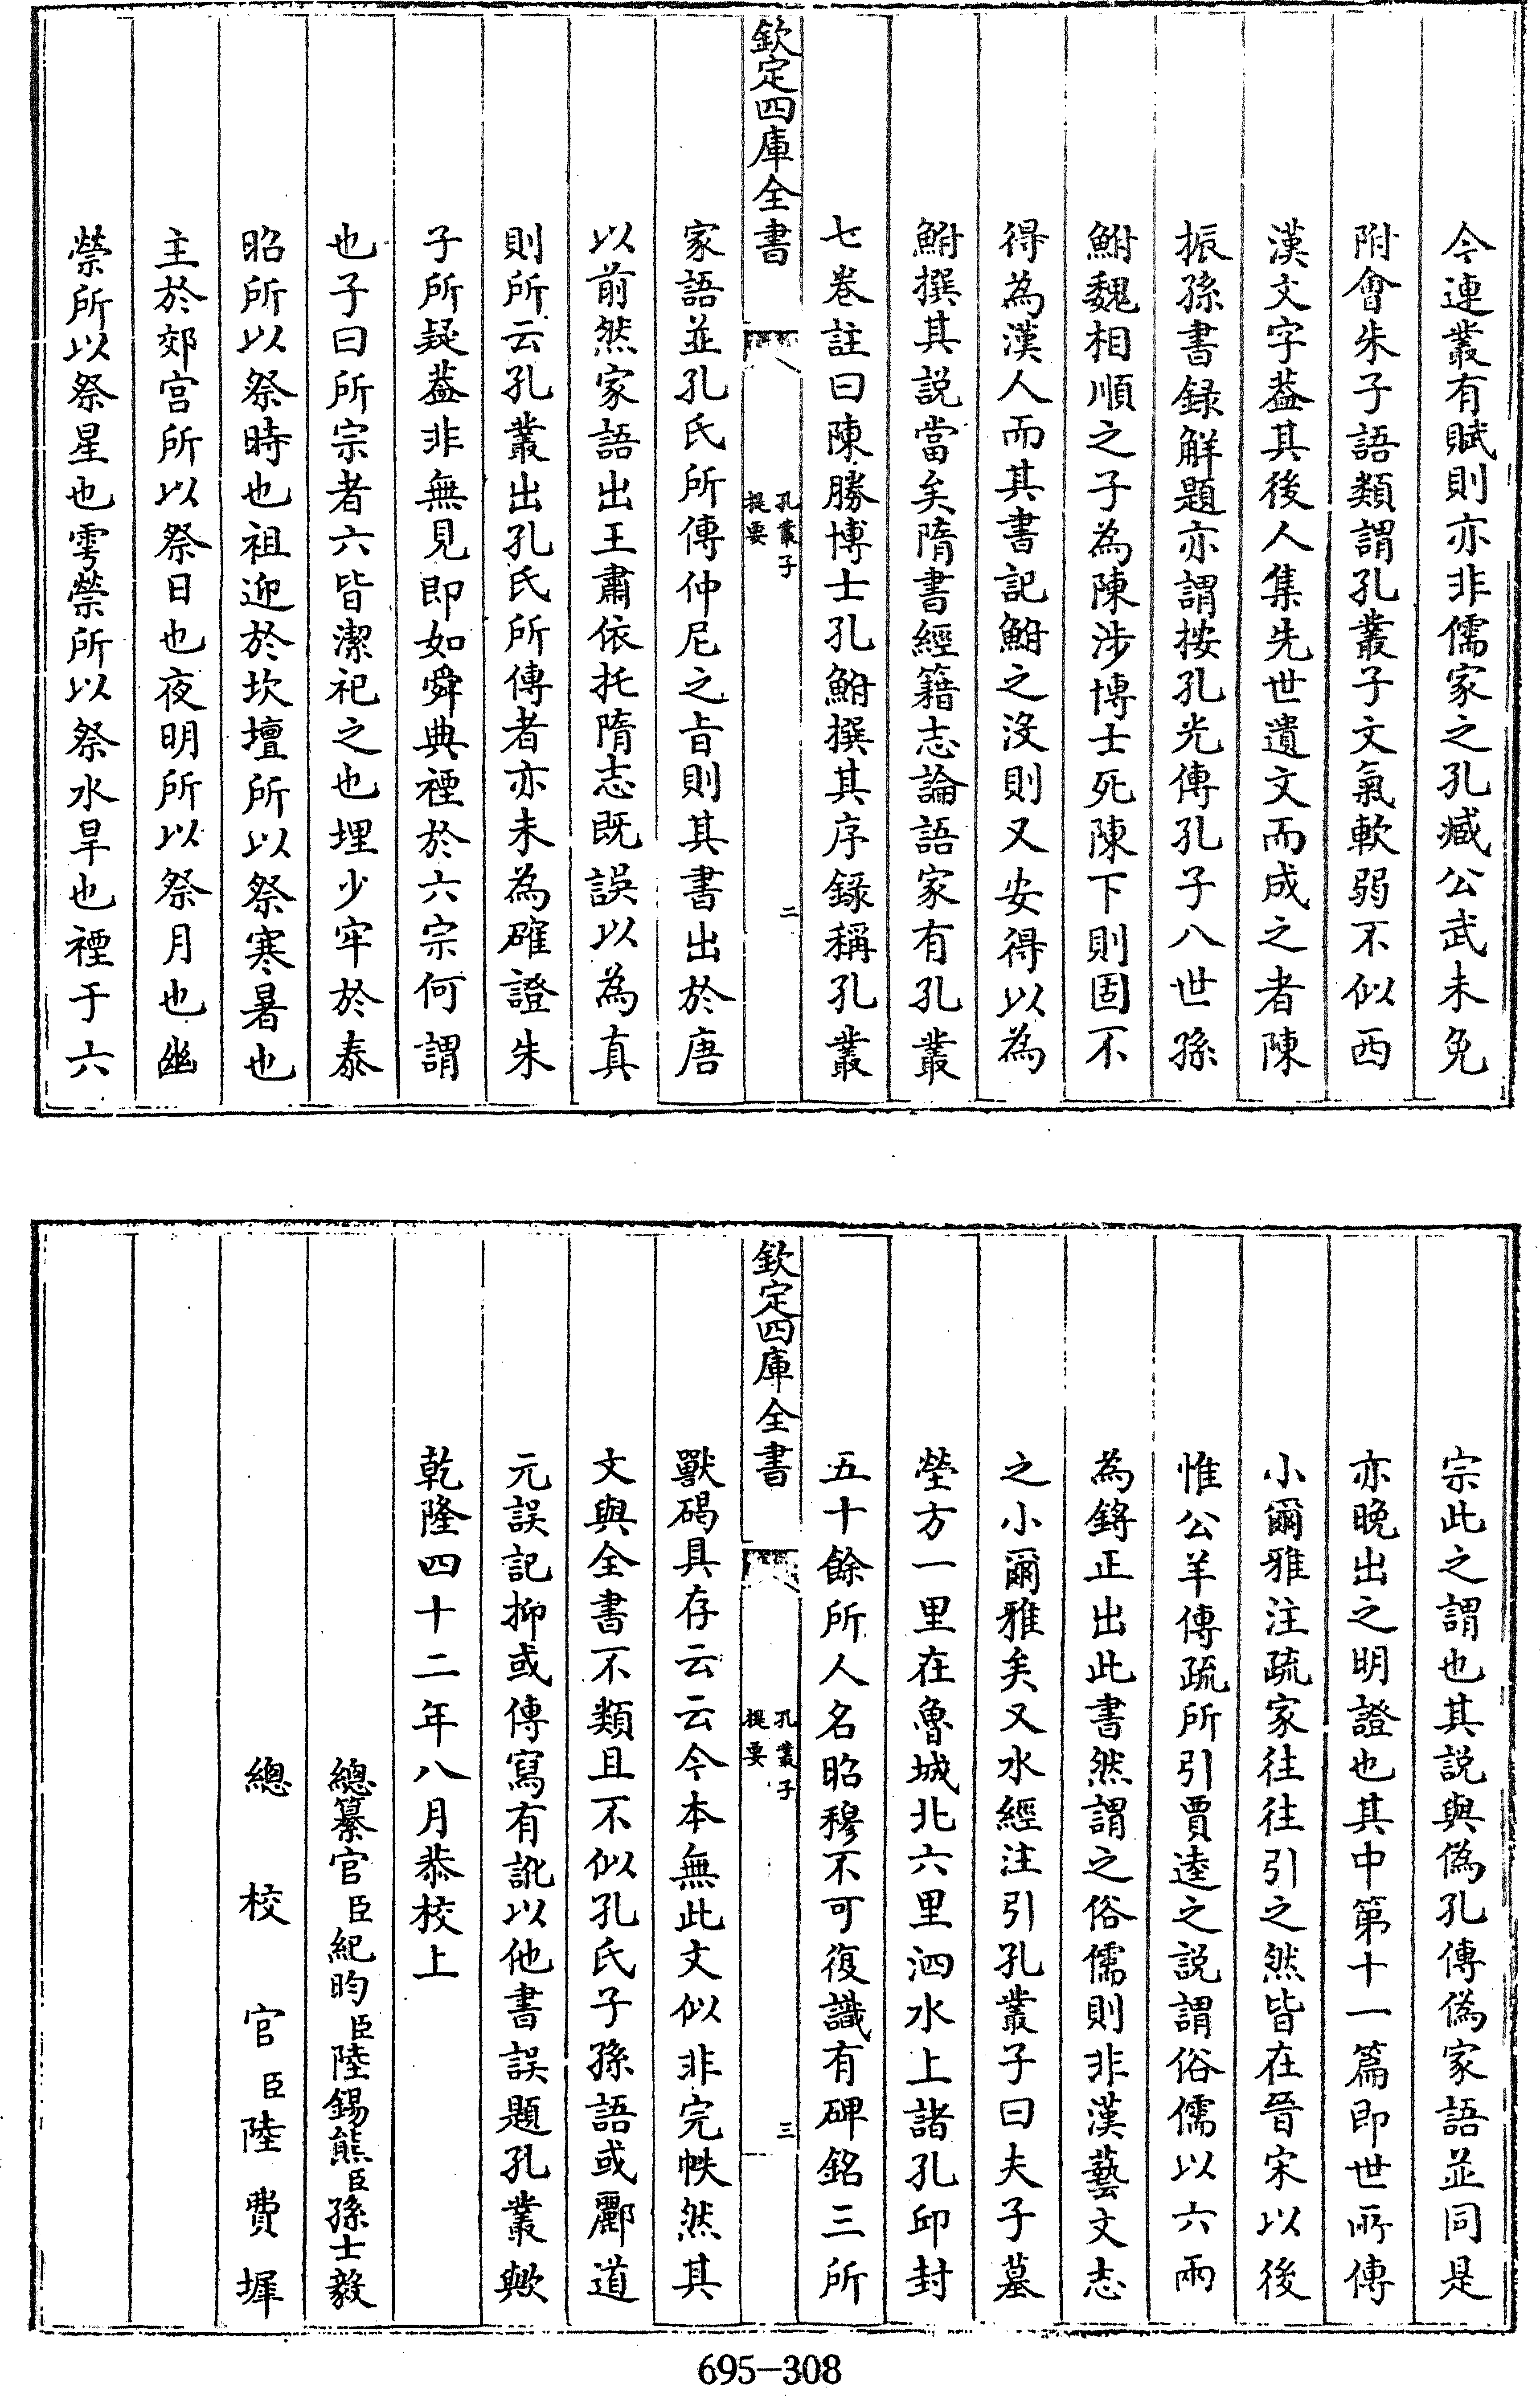 今連叢有賦則亦非儒家之孔臧公武未免
附會朱子語類謂孔叢子文氣軟弱不似西
漢文字葢其後人集先世遺文而成之者陳
振孫書録解題亦謂按孔光傳孔子八世孫
鮒魏相順之子為陳涉博士死陳下則固不
得為漢人而其書記鮒之沒則又安得以為
鮒撰其説當矣隋書經籍志論語家有孔叢
七卷註曰陳勝博士孔鮒撰其序録稱孔叢
欽定四庫全書
孔叢子
提要
二
家語並孔氏所傳仲尼之旨則其書出於唐
以前然家語出王肅依托隋志既誤以為真
則所云孔叢出孔氏所傳者亦未為確證朱
子所疑葢非無見即如舜典禋於六宗何謂
也子曰所宗者六皆潔祀之也埋少牢於泰
昭所以祭時也祖迎於坎壇所以祭寒暑也
主於郊宫所以祭日也夜明所以祭月也幽
禜所以祭星也雩禜所以祭水旱也禋于六
宗此之謂也其説與偽孔傳偽家語並同是
亦晚出之明證也其中第十一篇即世所傳
小爾雅注疏家往往引之然皆在晉宋以後
惟公羊傳疏所引賈逵之説謂俗儒以六兩
為鋝正出此書然謂之俗儒則非漢藝文志
之小爾雅矣又水經注引孔叢子曰夫子墓
塋方一里在魯城北六里泗水上諸孔邱封
五十餘所人名昭穆不可復識有碑銘三所
欽定四庫全書
孔叢子
提要
三
獸碣具存云云今本無此文似非完帙然其
文與全書不類且不似孔氏子孫語或酈道
元誤記抑或傳寫有訛以他書誤題孔叢歟
乾隆四十二年八月恭校上
總纂官臣紀昀臣陸錫熊臣孫士毅
總校官臣陸費墀
695-308